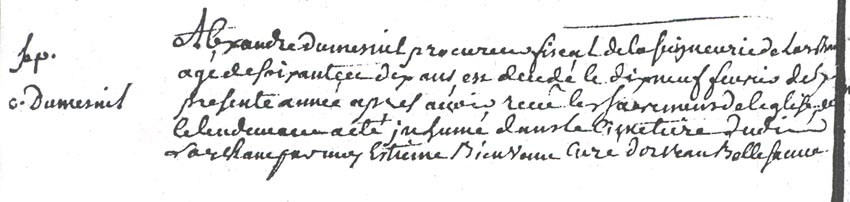 sep.
c. Dumesnil
Alexandre dumesnil procureur fiscal de la seigneurie de
agé de soixante et dix ans est decedé le dixneuf fevrier de la
presente année apres avoir receu les sacremens de leglise et
le lendemain a eté inhumé dans le cimetiere dudit
par moy Estieme Bienvenu curé